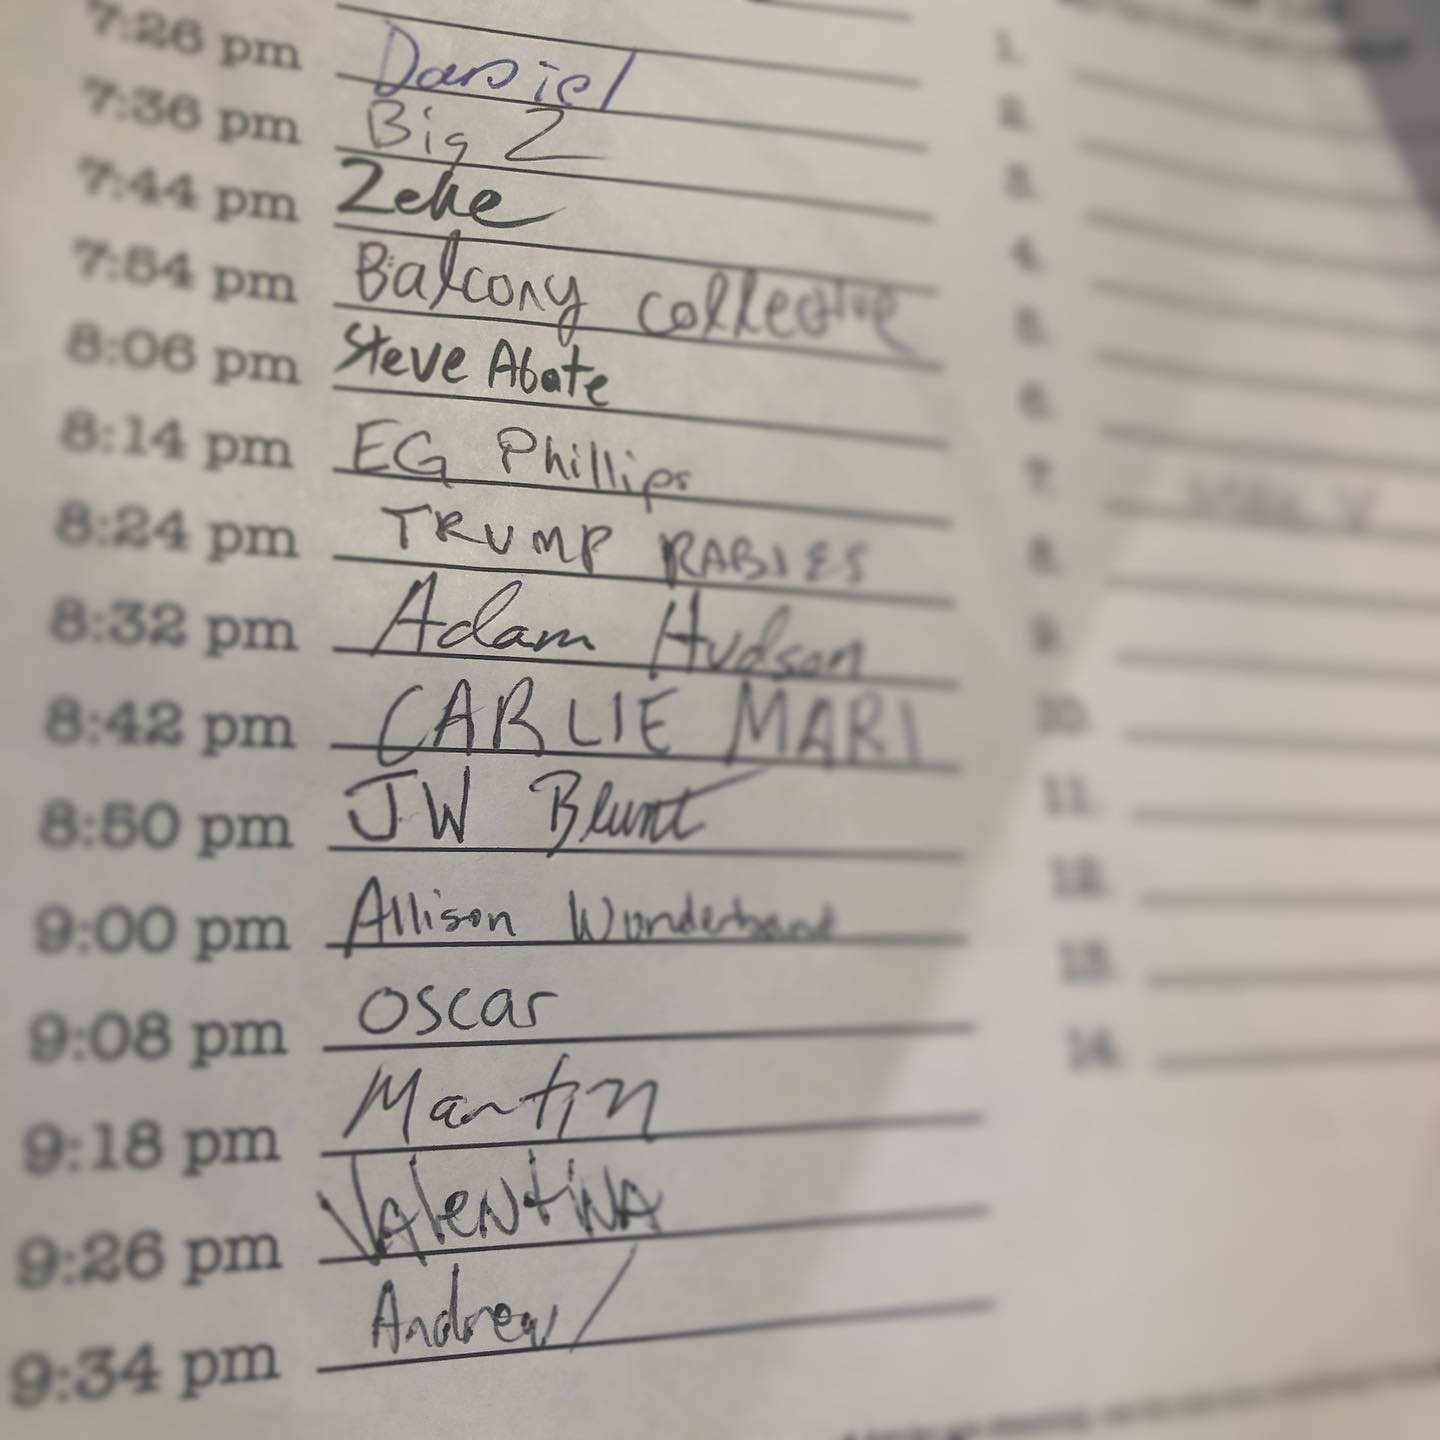 7:26 pm Daniel
7:36 pm Big Z
7:44 pm Zeke
7:54 pm Balcony collective
8:06 pm Steve Abate
8:14 pm EG Phillips
8:24 pm TRUMP RABIES
8:32 pm Adam Hudson
8:42 pm CARLIE MARI
8:50 pm JW Blunt
9:00 pm Allison Wunderband
9:08 pm Oscar
9:18 pm Martin
9:26 pm Valentina
9:34 pm Andrew
1.
2.
3.
4.
5.
6.
7.
8.
9.
10.
11.
12.
13.
14.